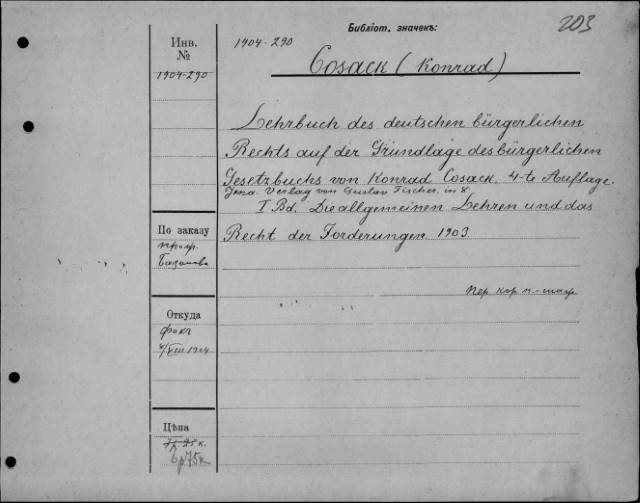 Библіот. значекъ:
203
Инв.
№
1904-290
1904-290
Cosack (Konrad)
Lehrbuch des deutschen bürgerlichen
Rechts auf der Grundlage des bürgerlichen
Gesetzbuchs von Konrad Cosack. 4-te Auflage.
Jena. Verlag von Gustav Fischer. in 8.
I Bd. Die allgemeinen Lehren und das
Recht der Forderungen. 1903.
По заказу
проф.
Базанова
пер. кор. к.-
Откуда
Фокъ
4/VIII 1904
Цѣна
7р. 25 к.
6р75к